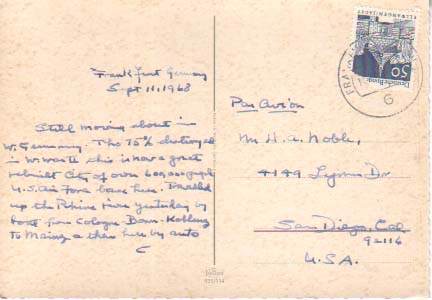 Frankfurt Germany
Sept 11, 1968
Still moving about in
W. Germany. Tho 75% destroyed
in W. War II this is now a great
rebuilt City of over 600,000 people
U.S. Air Force base here. Traveled
up the Rhine River yesterday by
boat from Cologne - Bonn - Koblenz
to Mainz & then here by auto
C
Par Avion
Mr H. A. Noble,
4149 Dr
San Diego, Cal
92116
U.S.A.
ELLWANGEN/JAGST
Deutsche Bundespost
50
6